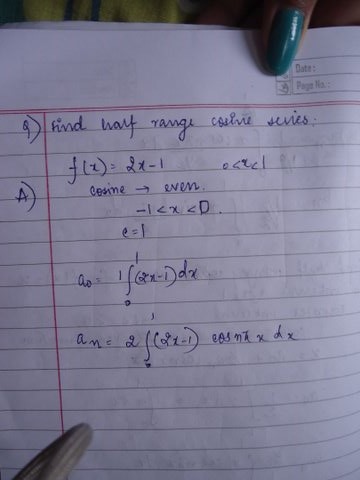 Date :
Page No. :
Q) Find half range cosine series.
f(x) = 2x-1 0<x<1
A) cosine → even.
-1<x<0.
c=1
a₀= 1∫₀¹(2x-1)dx
aₙ= 2∫₀¹(2x-1) cosnπx dx